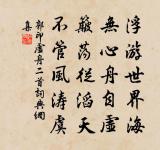 浮游世界海
無心舟自虛
簸蕩從滔天
不管風濤虞
郭印虛舟二首詞典網
集